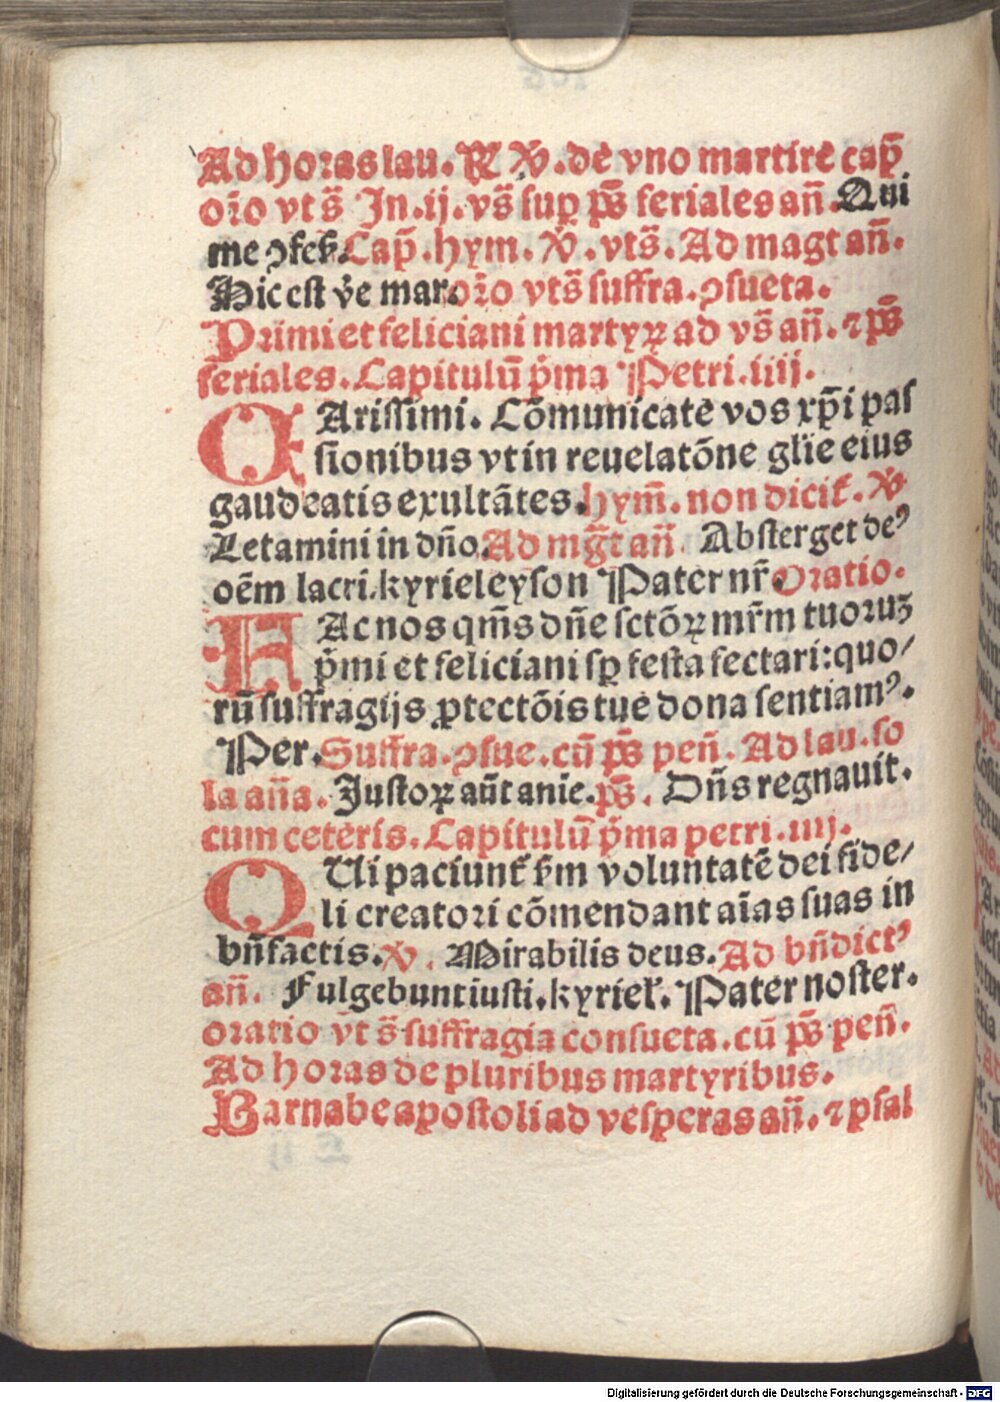 Ad horas lau. R̃ v̇. de vno martire cap̃
or̃o vt s̃ In .ij. vs̃ sup ps̃ feriales an̄. Qui
me ꝯfes̃. Cap̃. hym. v̇. vts̃. Ad magt an̄.
Hic est v̇e mar. or̃o vts̃ suffra. ꝯsueta.
Primi et feliciani martyꝝ ad vs̃ an̄. ⁊ ps̃
feriales. Capitulū p̃ma Petri. iiij.
CArissimi. Cōmunicate vos xp̄i pas
sionibus vt in reuelatōne glīe eius
gaudeatis exultātes. hym̄. non dicit̃. v̇
Letamini in dn̄o. Ad mg̃t an̄. Absterget de⁹
oēm lacri. kyrieleyson Pater nr̃. Oratio.
FAc nos qm̄s dn̄e sctōꝝ mr̃m tuoruꝫ
p̃mi et feliciani sꝑ festa sectari: quo/
rū suffragijs ꝓtectōis tue dona sentiam⁹.
Per. Suffra. ꝯsue. cū ps̃ pen̄. Ad lau. so
la an̄a. Justoꝝ aūt anīe. ps̃. Dn̄s regnauit.
cum ceteris. Capitulū p̃ma petri. iiij.
QUi paciunt̃ s̃m voluntatē dei fide/
li creatori cōmendant aīas suas in
bn̄factis. v̇. Mirabilis deus. Ad bn̄dict⁹
an̄. Fulgebunt iusti. kyriel̃. Pater noster.
oratio vt s̃ suffragia consueta. cū ps̃ pen̄.
Ad horas de pluribus martyribus.
Barnabe apostoli ad vesperas an̄. ⁊ psal
Digitalisierung gefördert durch die Deutsche Forschungsgemeinschaft - DFG